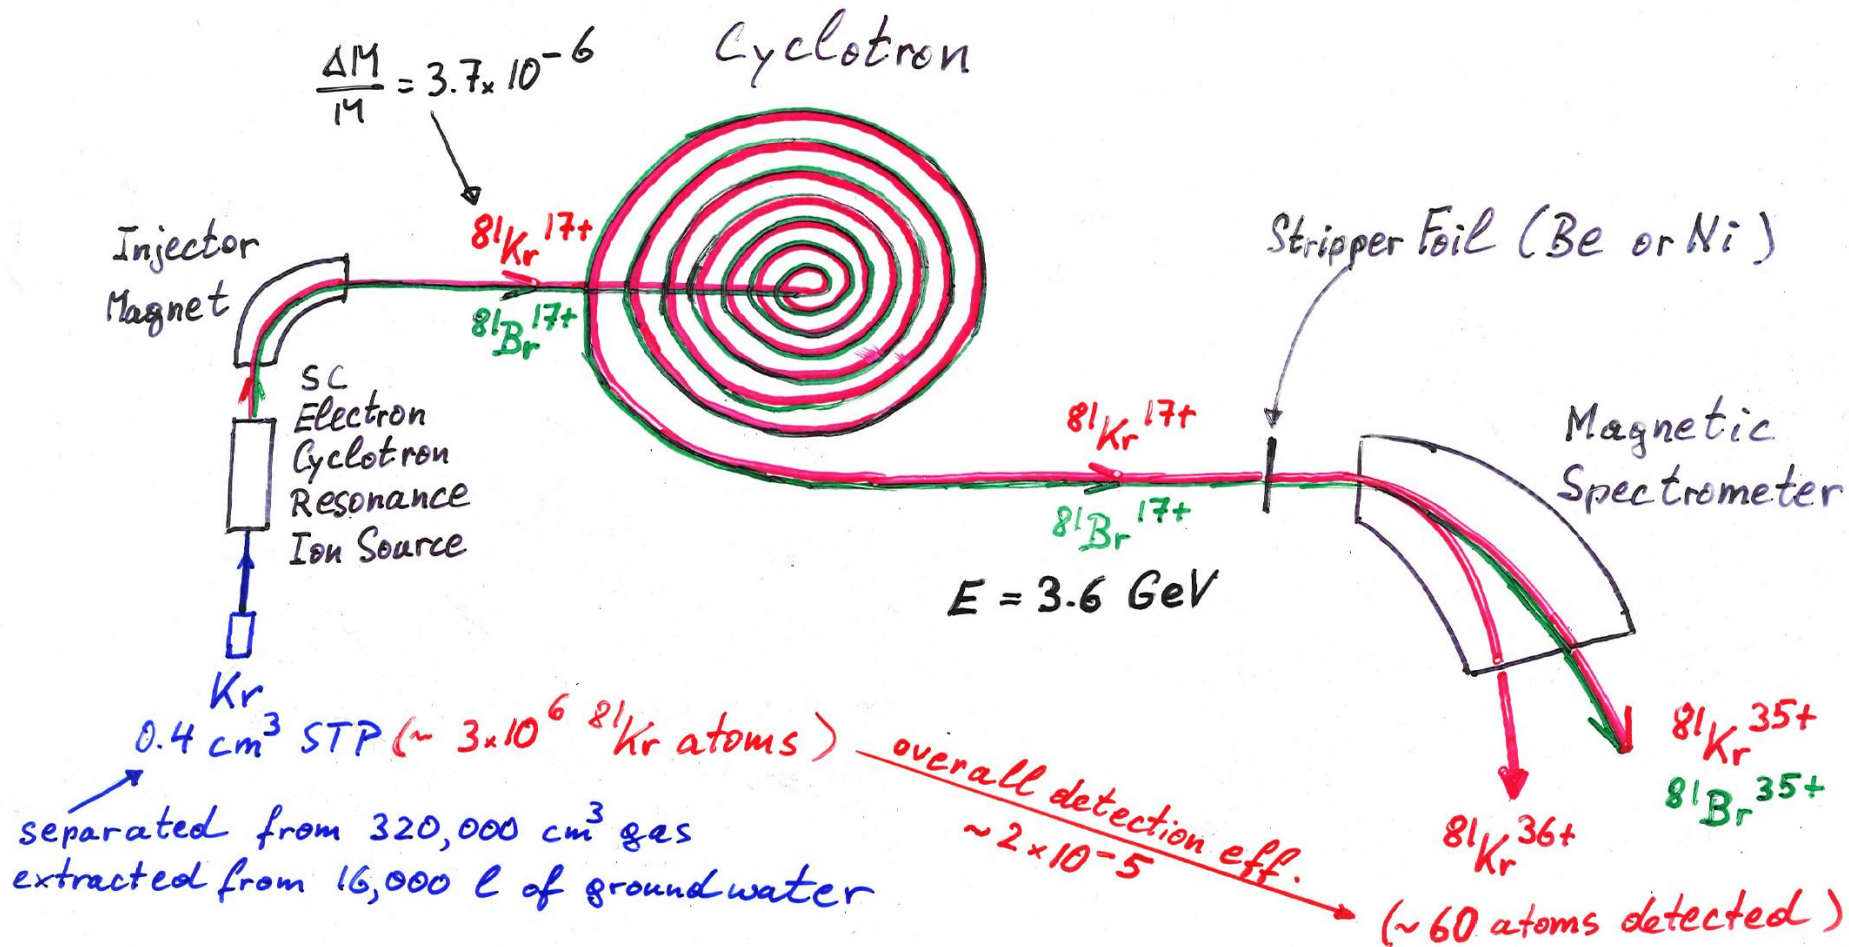 Cyclotron
ΔM/M = 3.7 × 10⁻⁶
Injector
Magnet
⁸¹Kr¹⁷⁺
⁸¹Br¹⁷⁺
Stripper Foil (Be or Ni)
SC
Electron
Cyclotron
Resonance
Ion Source
⁸¹Kr¹⁷⁺
⁸¹Br¹⁷⁺
Magnetic
Spectrometer
E = 3.6 GeV
Kr
0.4 cm³ STP (~ 3×10⁶ ⁸¹Kr atoms)
separated from 320,000 cm³ gas
extracted from 16,000 l of groundwater
overall detection eff.
~ 2×10⁻⁵
⁸¹Kr³⁵⁺
⁸¹Br³⁵⁺
⁸¹Kr³⁶⁺
(~60 atoms detected)